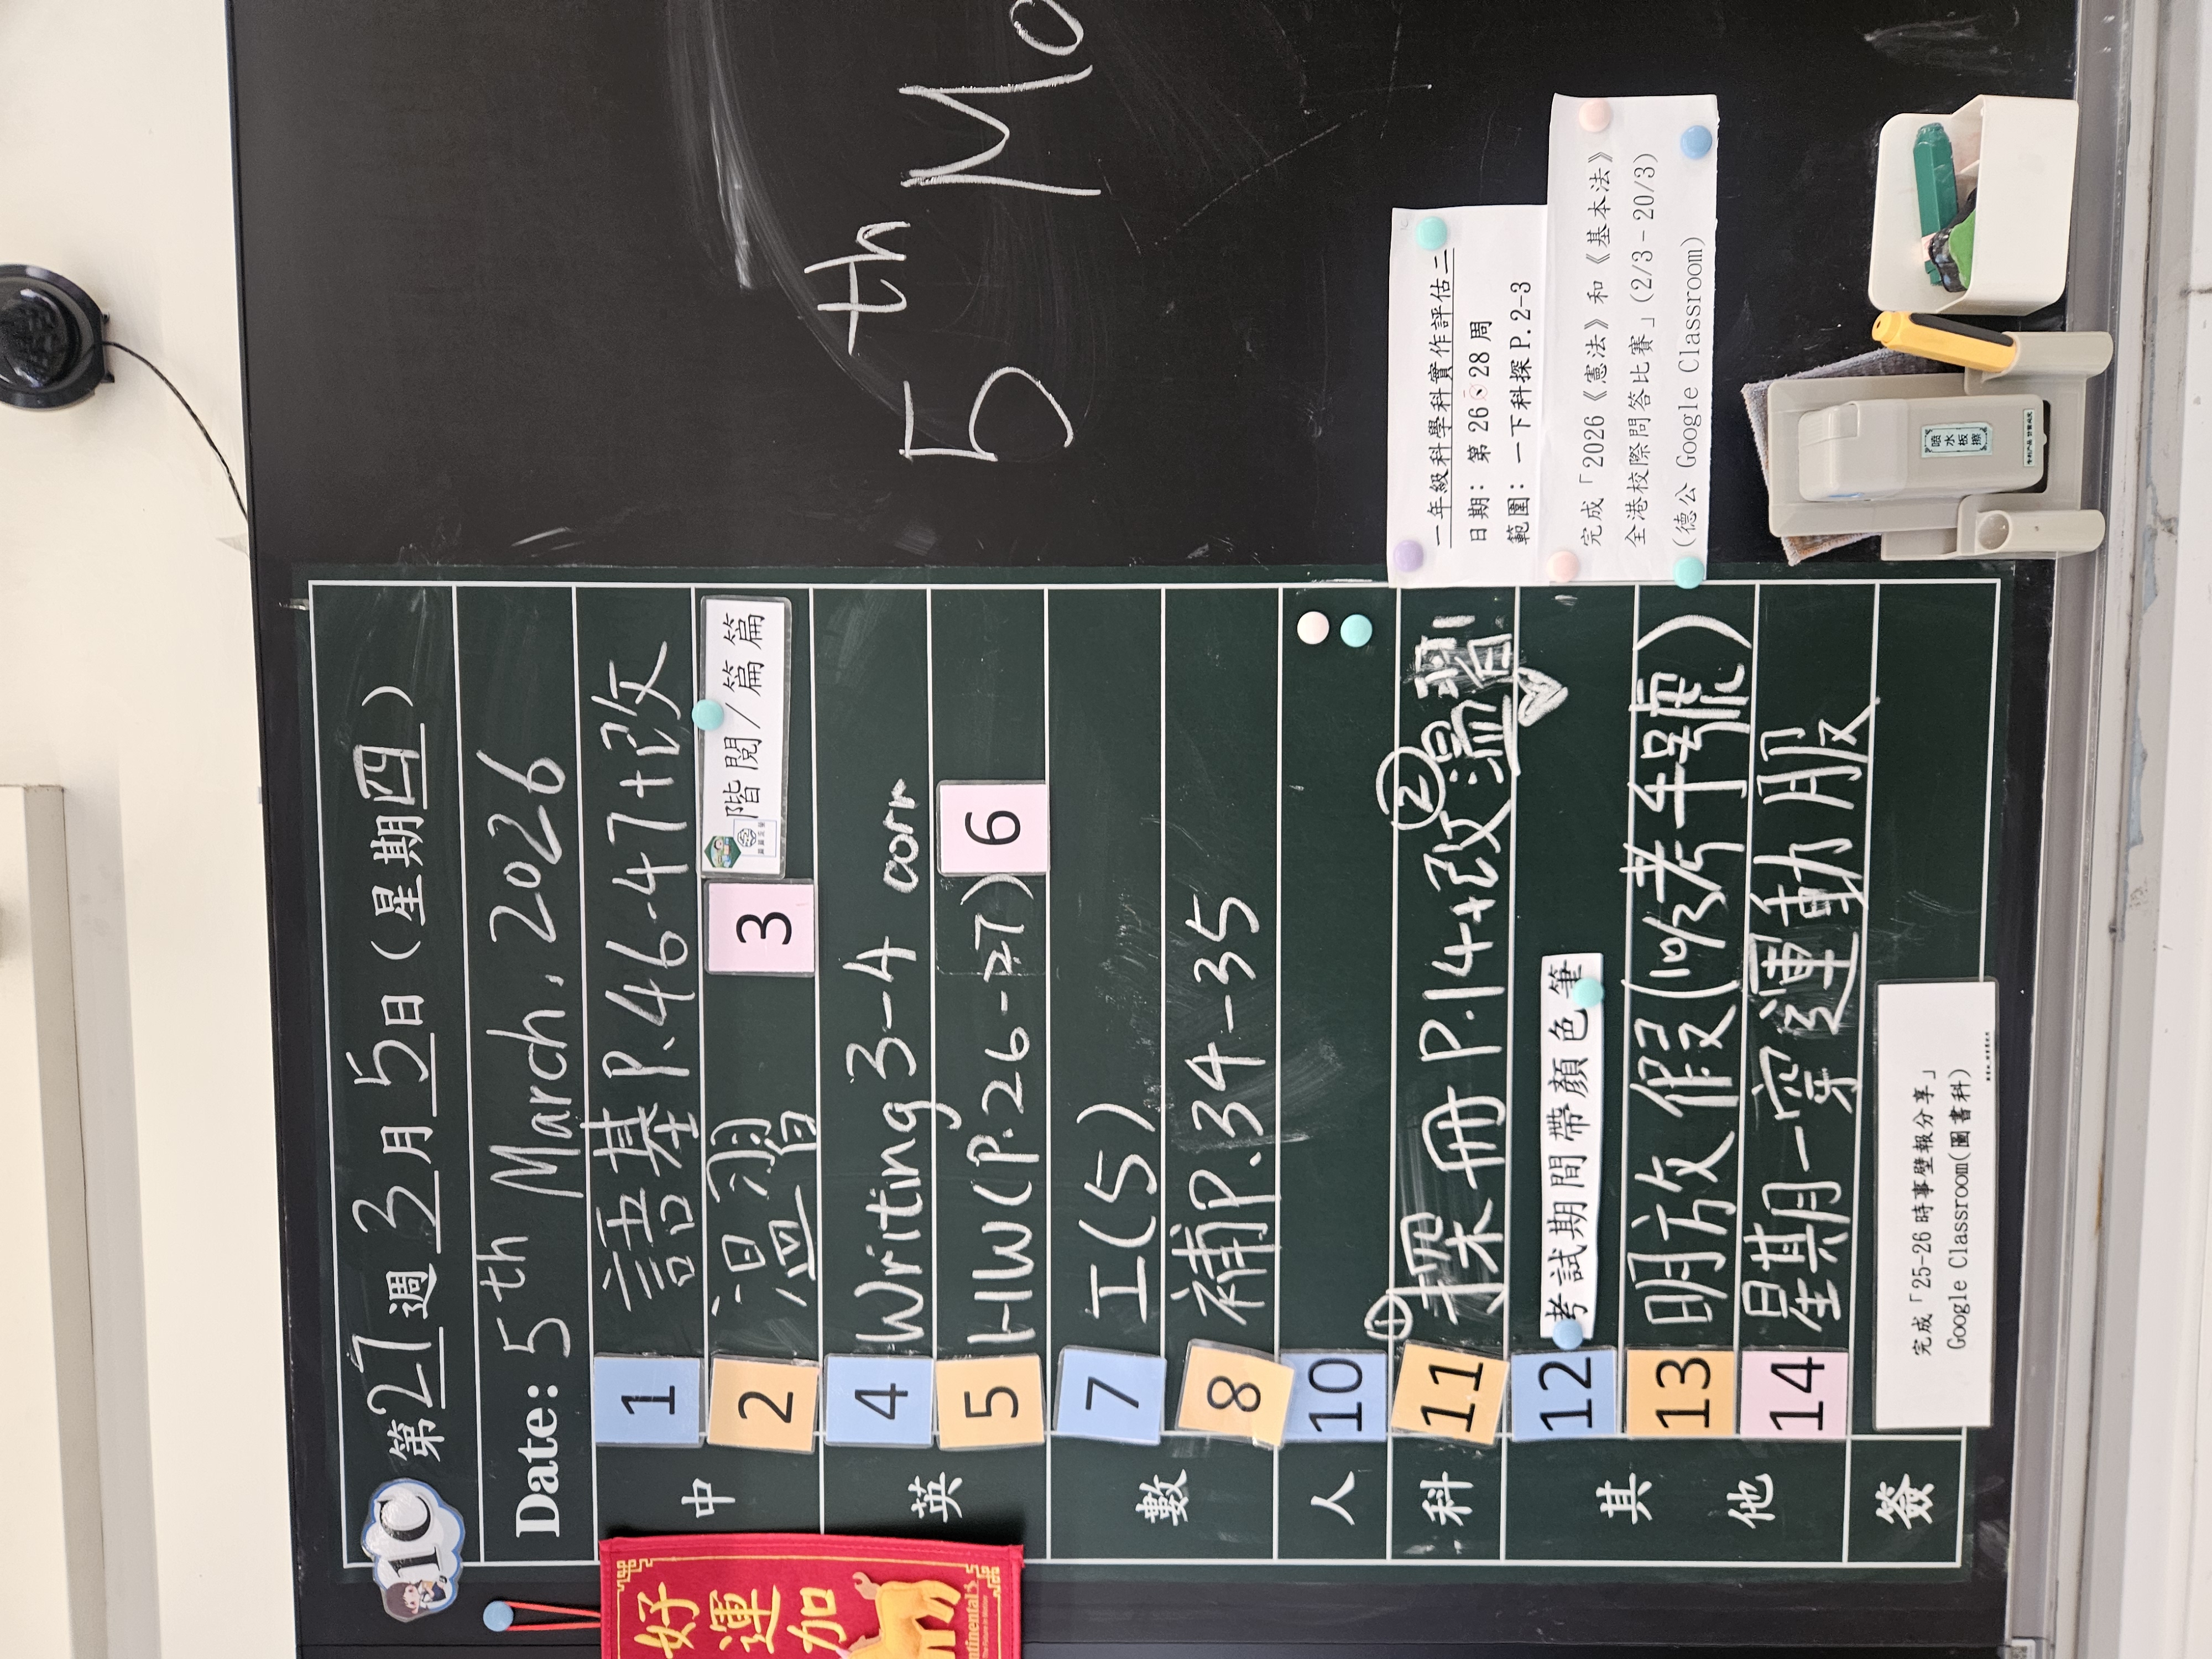 1C
第27週3月5日(星期四)
Date: 5th March, 2026
中
1 語基P.46-47+改
2 溫習
3 階閱/篇篇
英
4 Writing 3-4 corr
5 HW(P.26-27) 6
數
7 工(5)
8 補P.34-35
人
10
科
11 ①探冊P.14+改 ②溫
其他
12 考試期間帶顏色筆
13 明放假(10/3考牛號)
14 星期一穿運動服
簽
完成「25-26時事壁報分享」
Google Classroom(圖書科)
5th Mo
一年級科學科實作評估二
日期：第26、28周
範圍：一下科探P.2-3
完成「2026《憲法》和《基本法》
全港校際問答比賽」(2/3-20/3)
(德公 Google Classroom)
好
運
加
噴水板擦